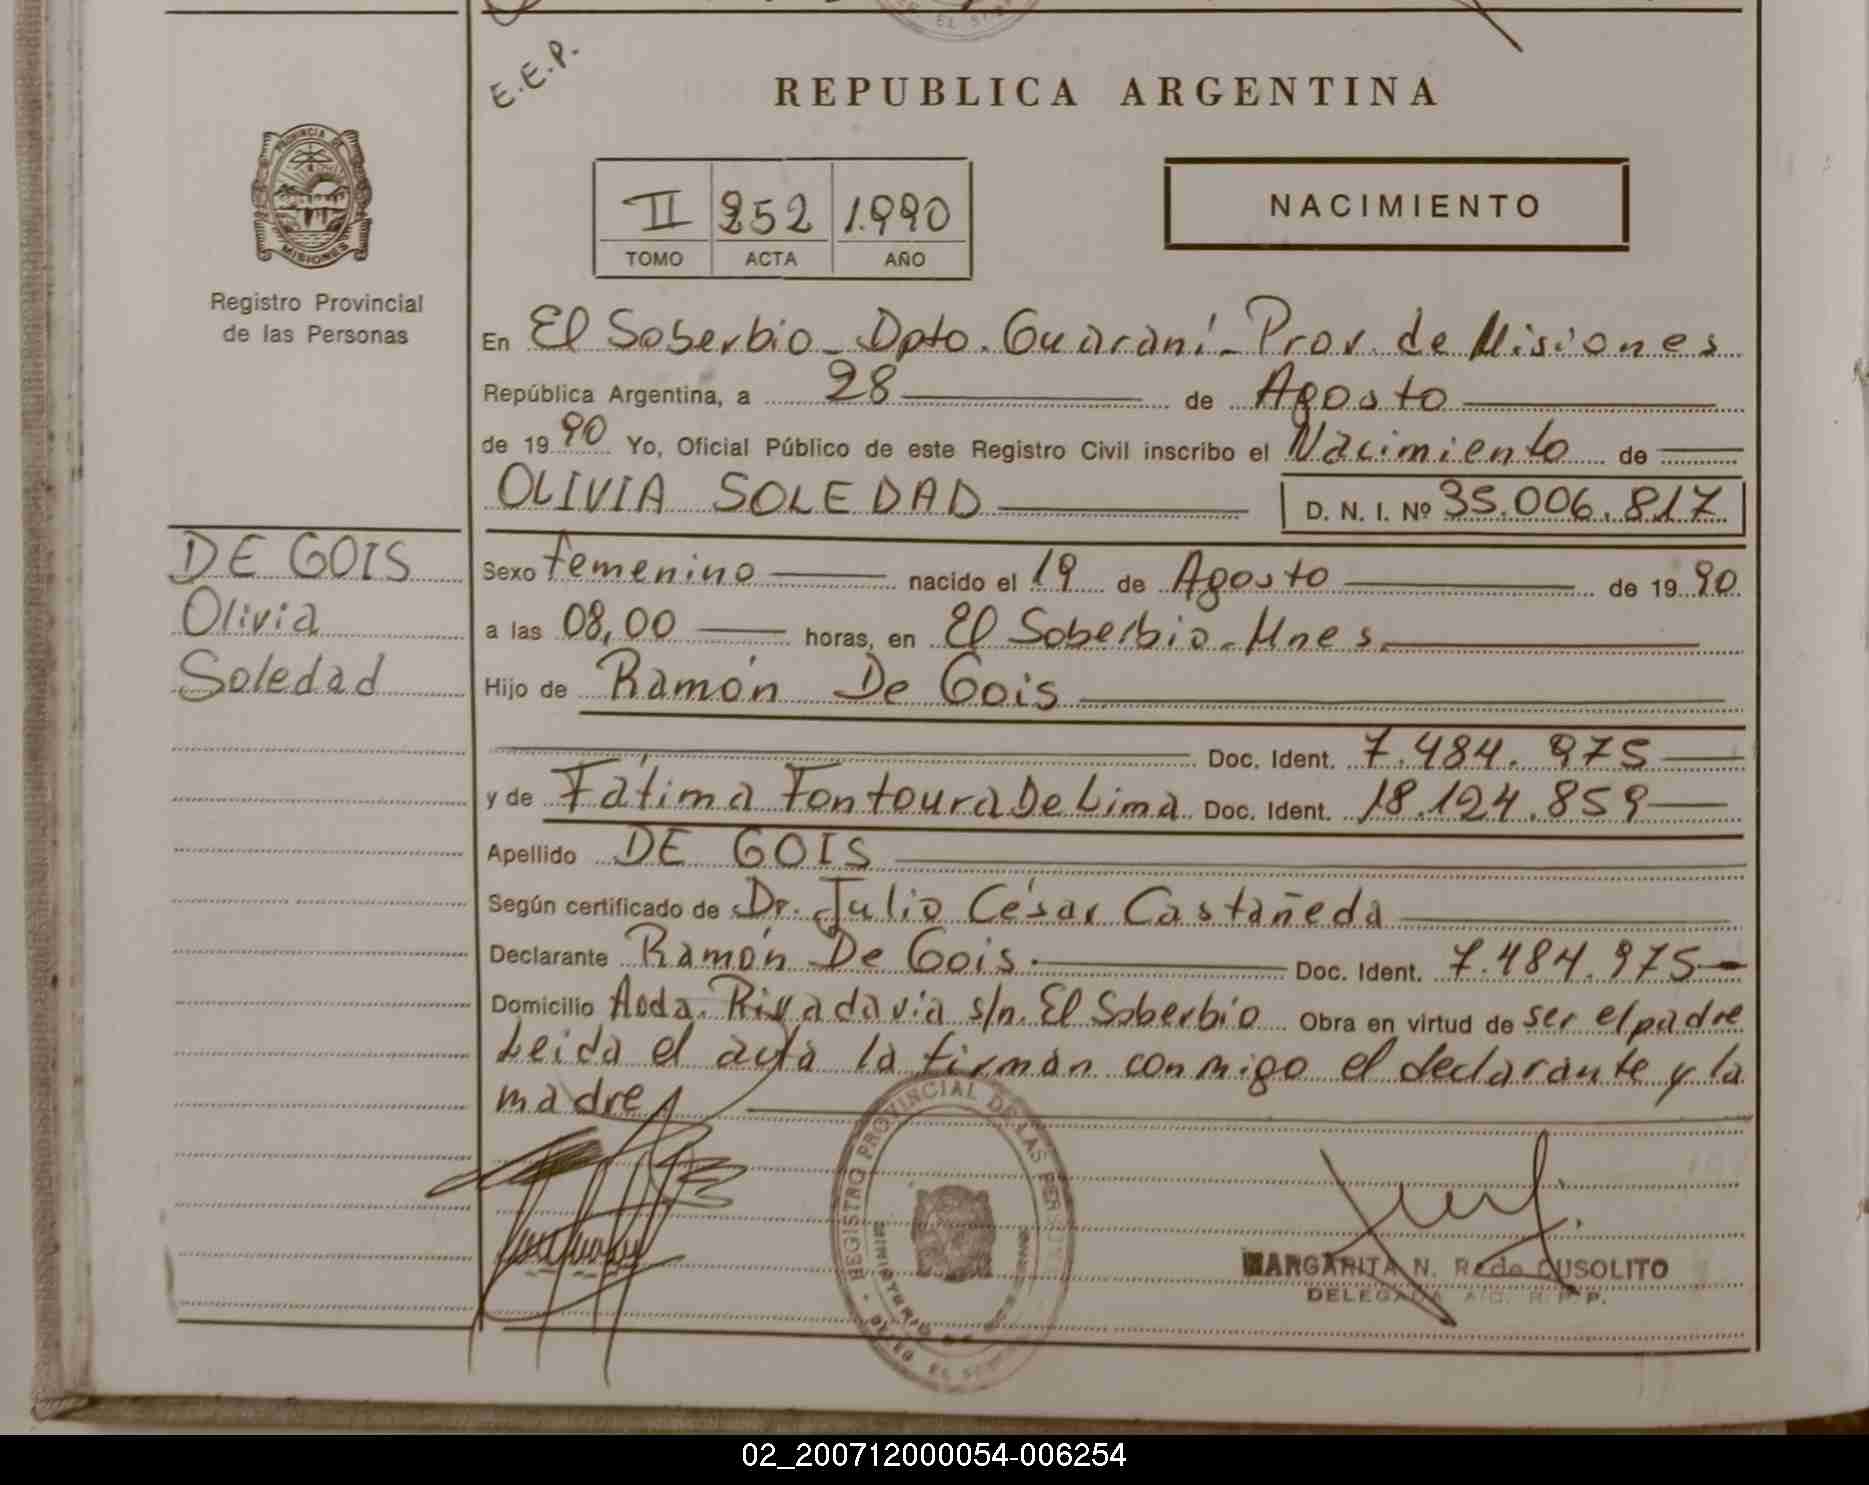 E.E.P.
REPUBLICA ARGENTINA
PROVINCIA DE
MISIONES
Registro Provincial
de las Personas
II 252 1.990
TOMO ACTA AÑO
NACIMIENTO
En El Soberbio - Dpto. Guaraní - Prov. de Misiones
República Argentina, a 28 de Agosto
de 1990 Yo, Oficial Público de este Registro Civil inscribo el Nacimiento de
OLIVIA SOLEDAD D. N. I. Nº 35.006.817
DE GOIS
Olivia
Soledad
Sexo femenino nacido el 19 de Agosto de 1990
a las 08,00 horas, en El Soberbio - Mnes.
Hijo de Ramón De Gois
Doc. Ident. 7.484.975
y de Fátima Fontoura De Lima Doc. Ident. 18.124.859
Apellido DE GOIS
Según certificado de Dr. Julio César Castañeda
Declarante Ramón De Gois. Doc. Ident. 7.484.975
Domicilio Avda. Rivadavia s/n. El Soberbio Obra en virtud de ser el padre
Leida el acta la firman conmigo el declarante y la
madre
REGISTRO PROVINCIAL DE LAS PERSONAS
MINISTERIO DE
MARGARITA N. R. de CUSOLITO
DELEGADA A/C. R. P. P.
02_200712000054-006254